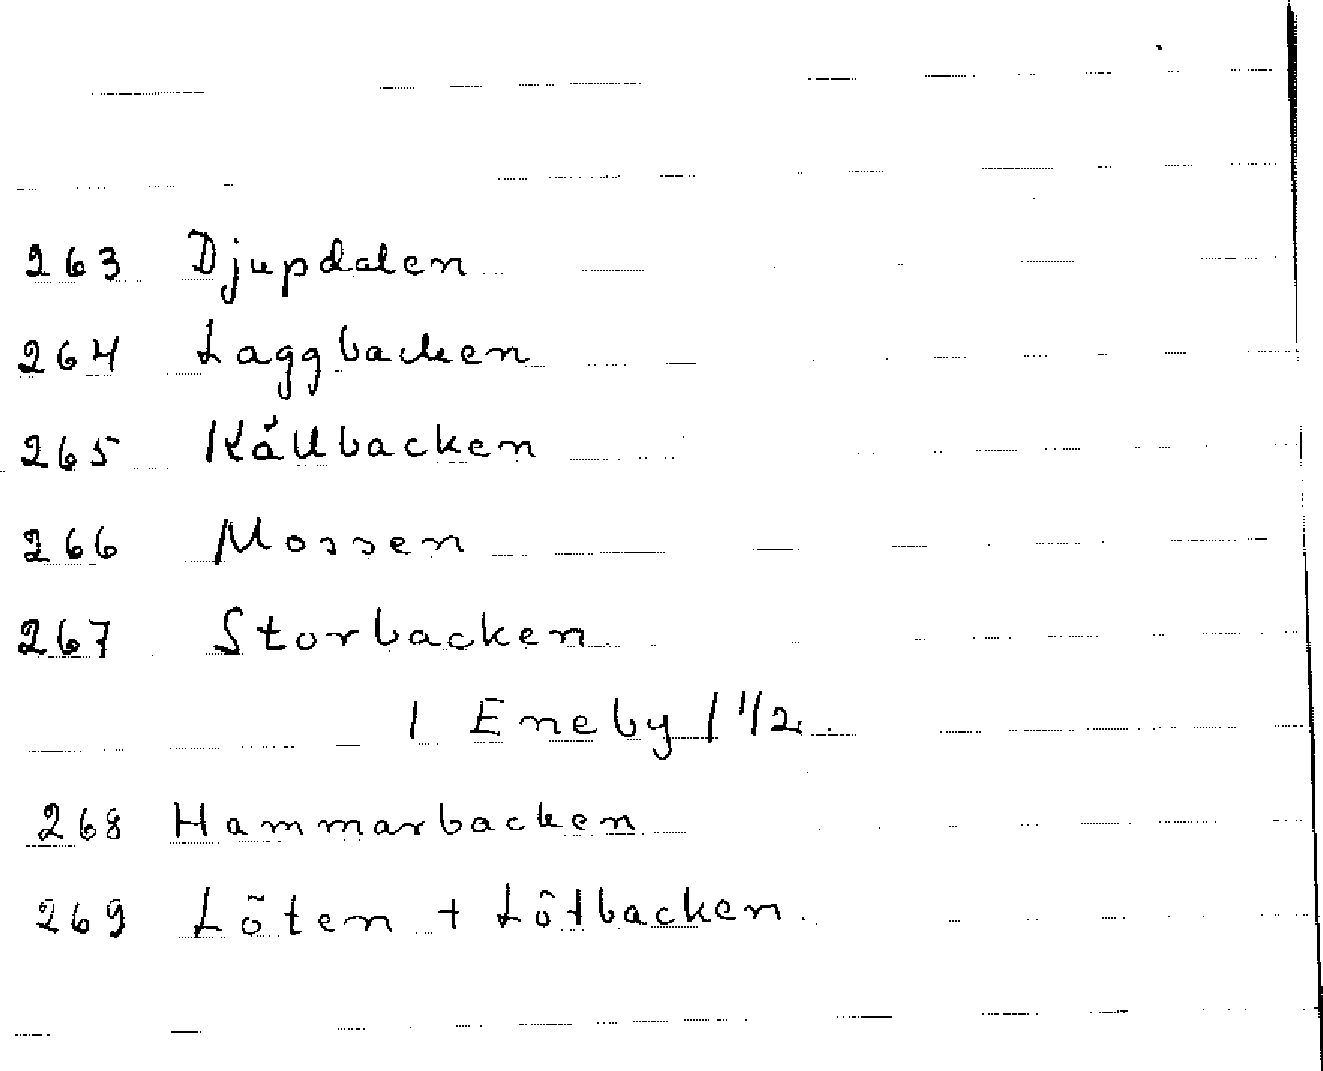 263 Djupdalen
264 Laggbacken
265 Källbacken
266 Mossen
267 Storbacken
1 Eneby 1 1/2
268 Hammarbacken
269 Löten + Lötbacken.